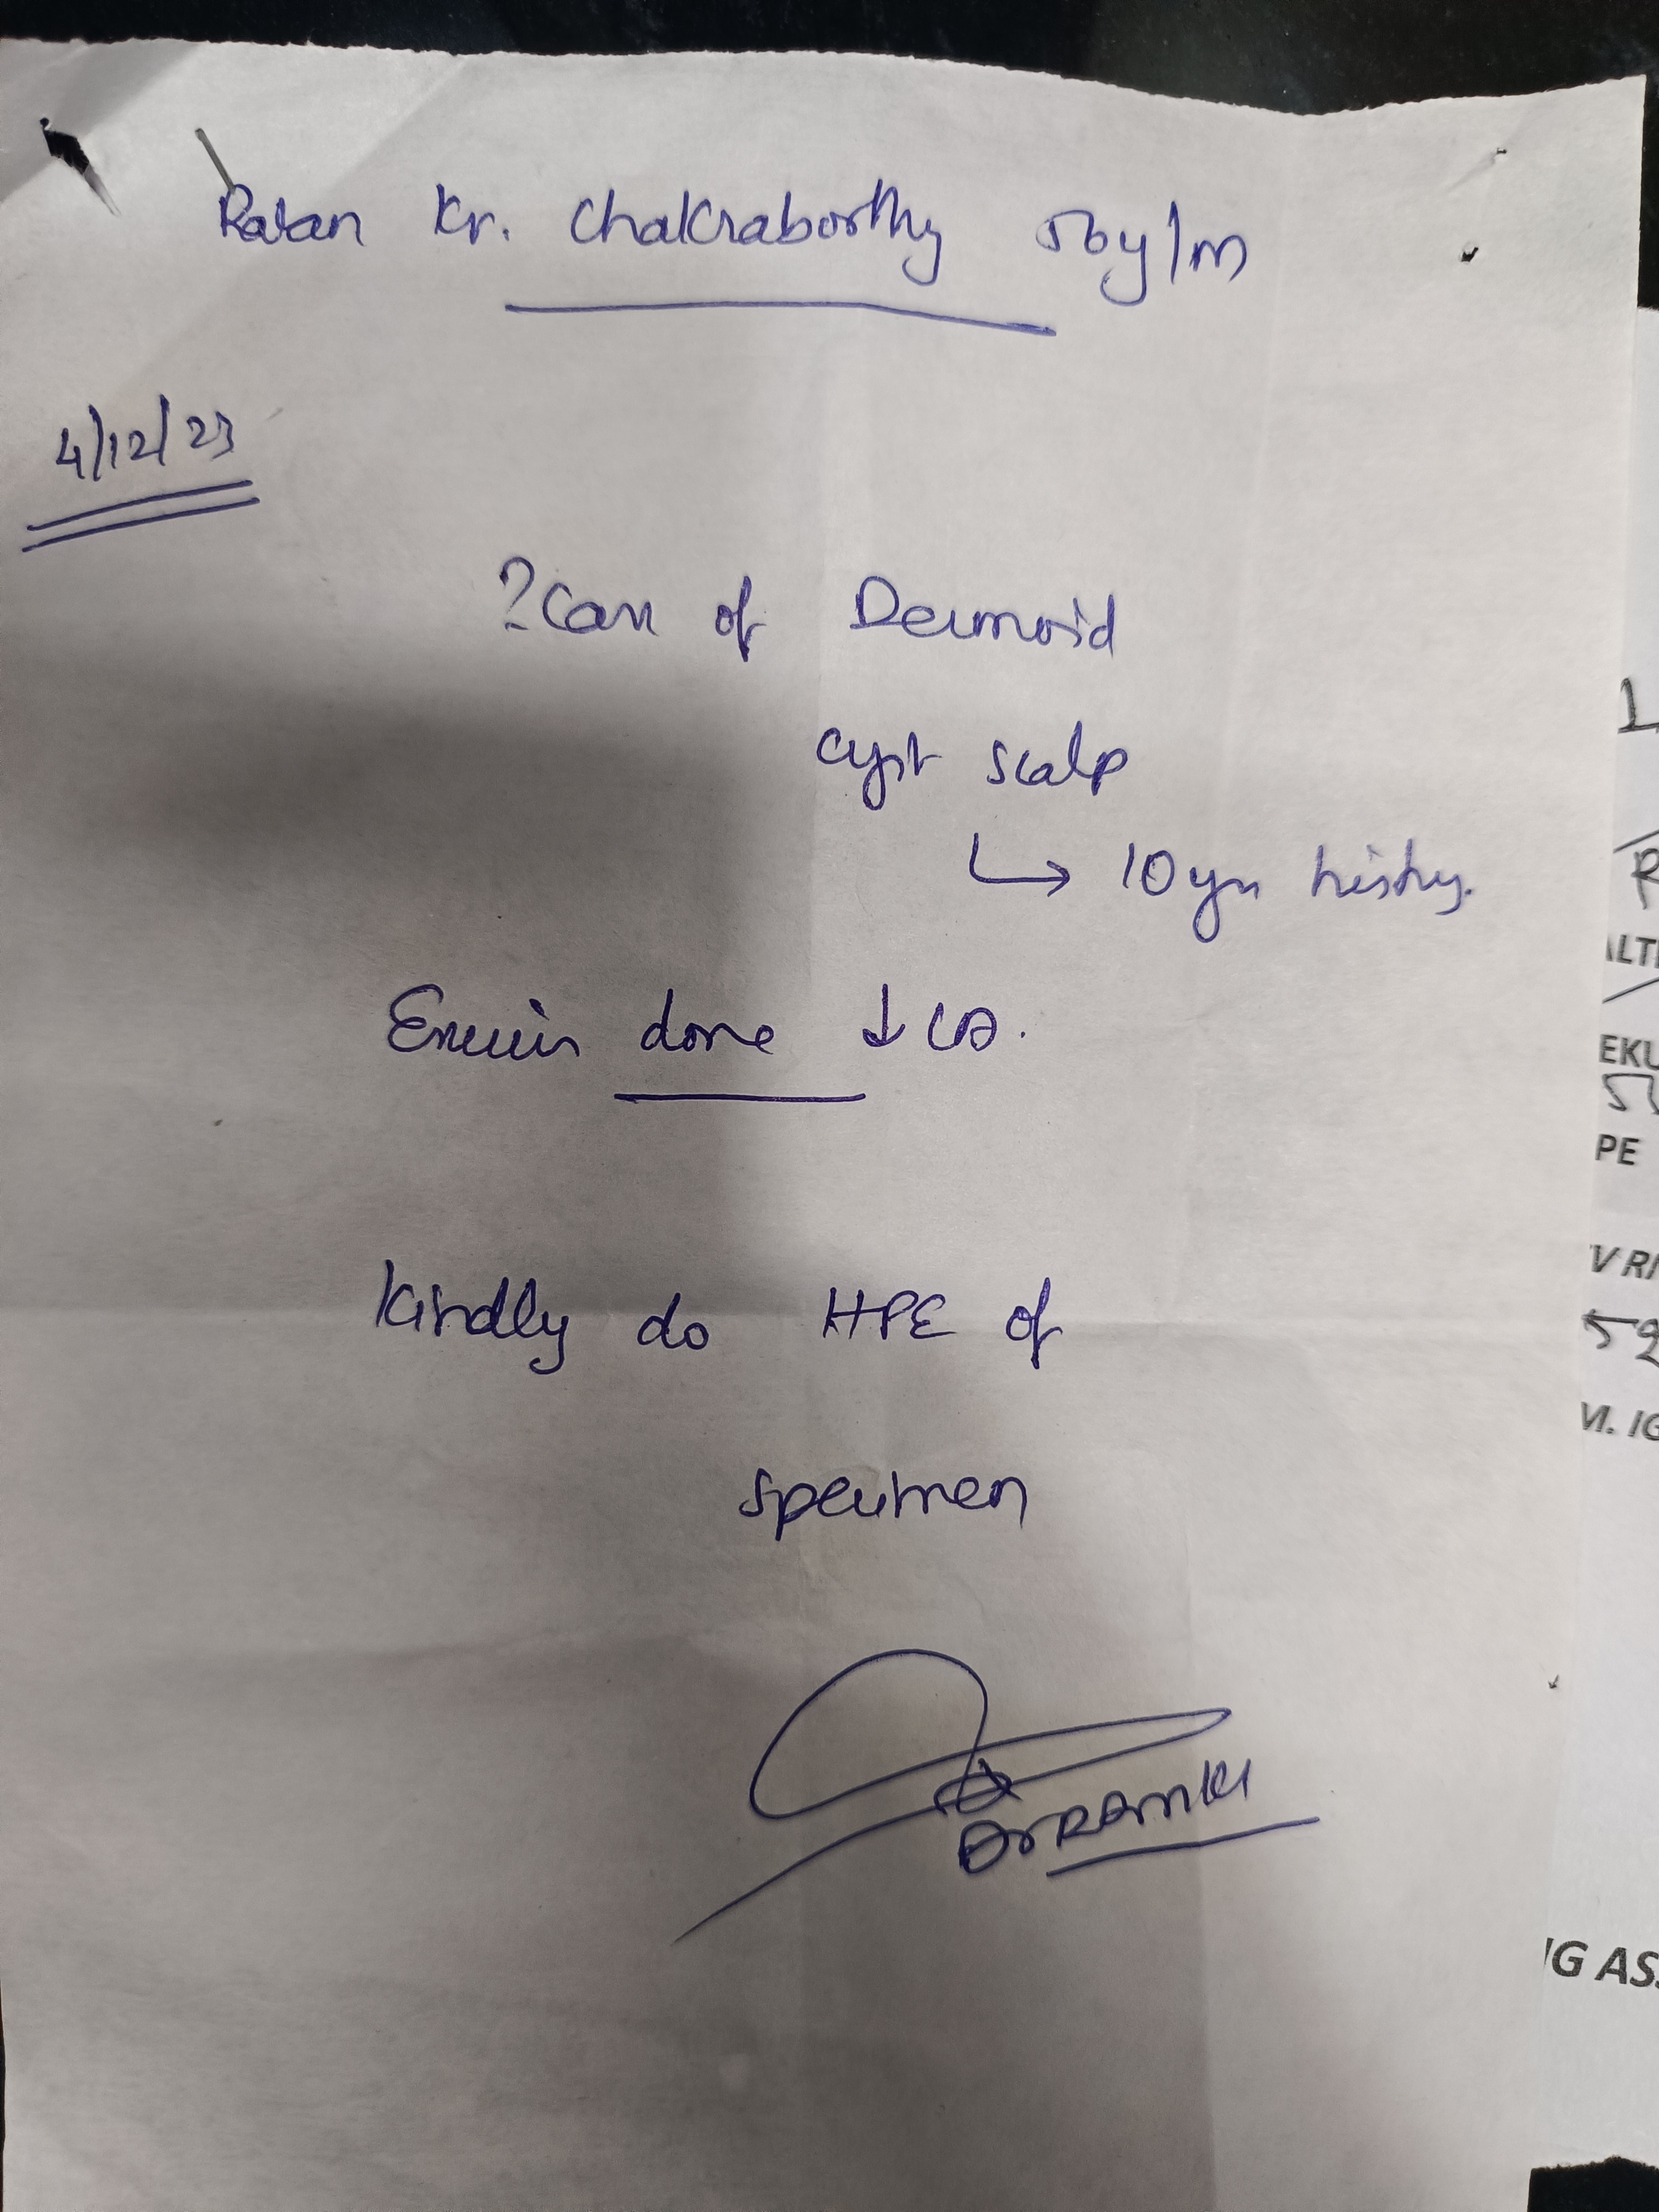 Ratan Kr. Chakraborthy 56y/m
4/12/23
? Case of Dermoid
cyst scalp
↳ 10 yrs history.
Excision done ↓ LA.
Kindly do HPE of
specimen
Dr RAMKI
L
R
ALT
EKU
PE
V RI
52
M. IG
IG AS